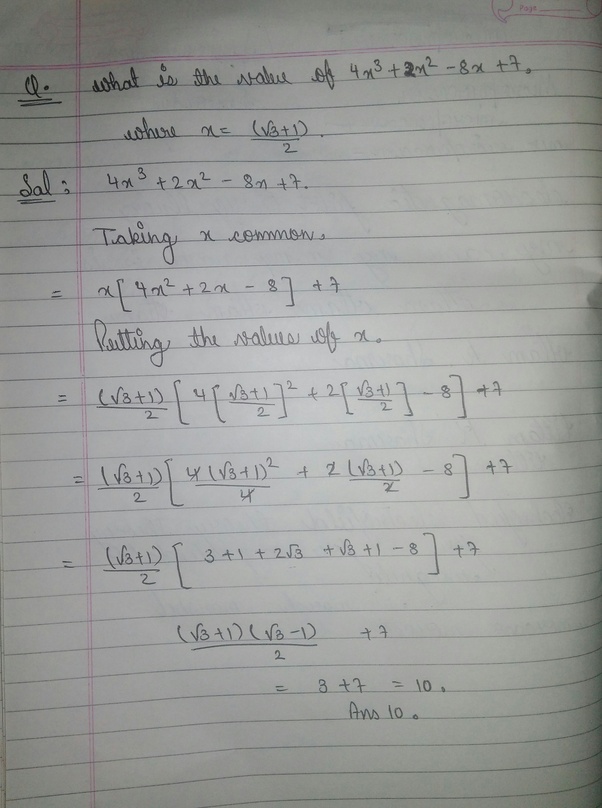 Page
Q. what is the value of 4x³ + 2x² - 8x + 7.
where x = (√3+1)/2.
Sol: 4x³ + 2x² - 8x + 7.
Taking x common.
= x[4x² + 2x - 8] + 7
Putting the values of x.
= (√3+1)/2 [4[√3+1/2]² + 2[√3+1/2] - 8] + 7
= (√3+1)/2 [4(√3+1)²/4 + 2(√3+1)/2 - 8] + 7
= (√3+1)/2 [3 + 1 + 2√3 + √3 + 1 - 8] + 7
(√3+1)(√3-1)/2 + 7
= 3 + 7 = 10.
Ans 10.